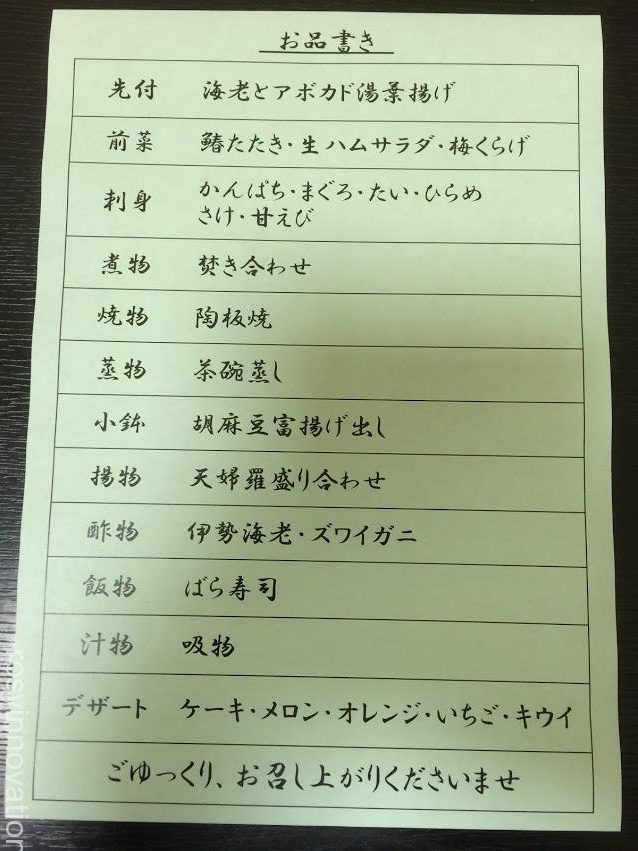 お品書き
先付 海老とアボカド湯葉揚げ
前菜 鰆たたき・生ハムサラダ・梅くらげ
刺身 かんぱち・まぐろ・たい・ひらめ
さけ・甘えび
煮物 焚き合わせ
焼物 陶板焼
蒸物 茶碗蒸し
小鉢 胡麻豆富揚げ出し
揚物 天婦羅盛り合わせ
酢物 伊勢海老・ズワイガニ
飯物 ばら寿司
汁物 吸物
デザート ケーキ・メロン・オレンジ・いちご・キウイ
ごゆっくり、お召し上がりくださいませ